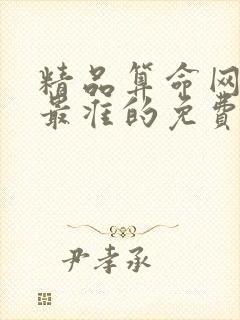 精品算命网
最准的免费
尹孝承